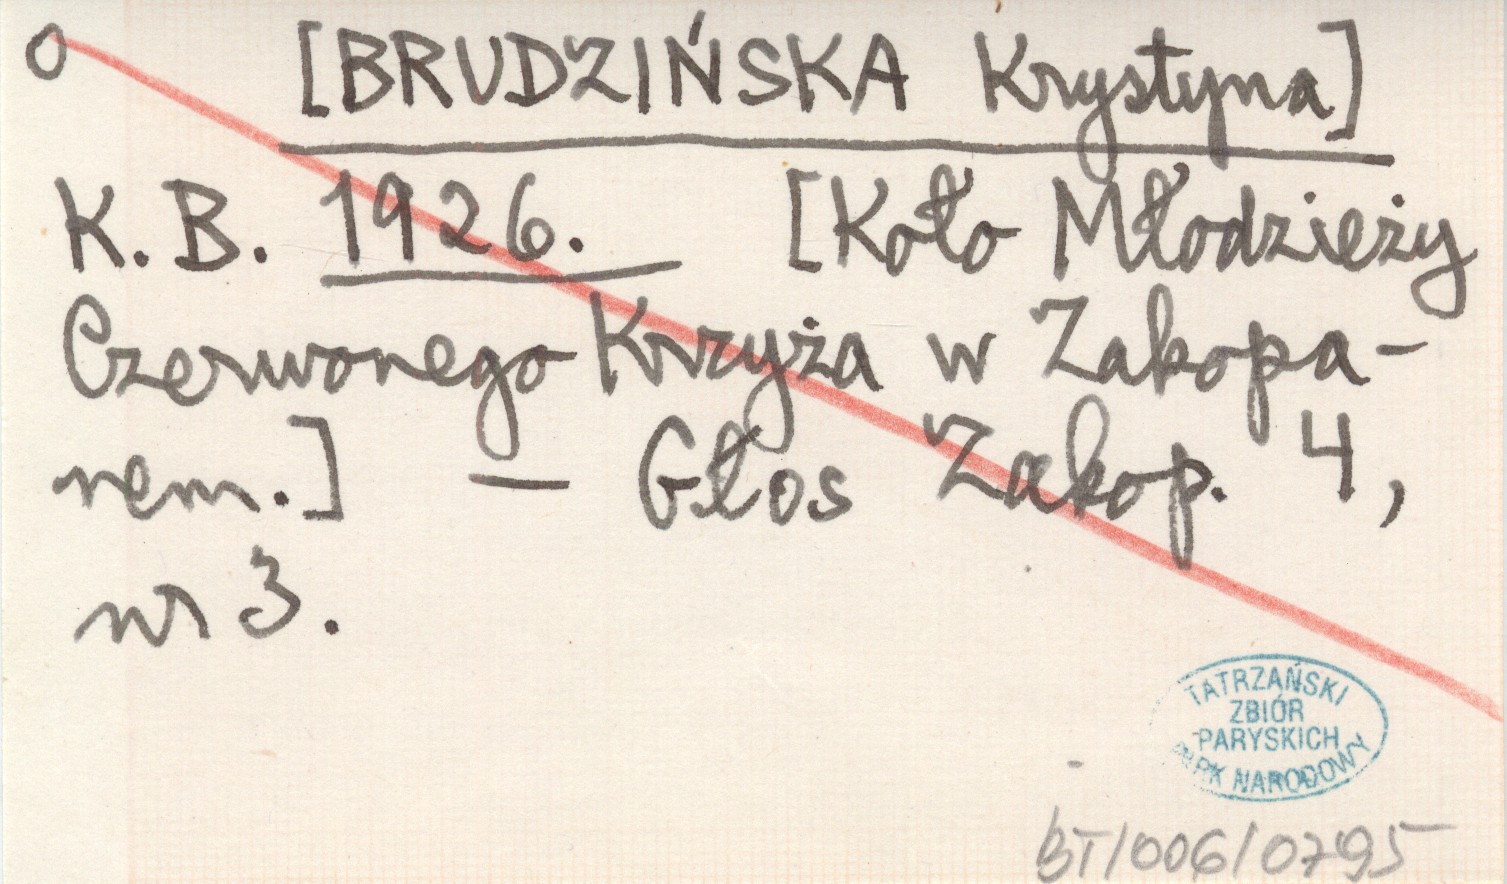 O [BRUDZIŃSKA Krystyna]
K. B. 1926. [Koło Młodzieży
Czerwonego Krzyża w Zakopa-
nem.] — Głos Zakop. 4,
nr 3.
TATRZAŃSKI
ZBIÓR
PARYSKICH
PARK NARODOWY
BT/006/0795